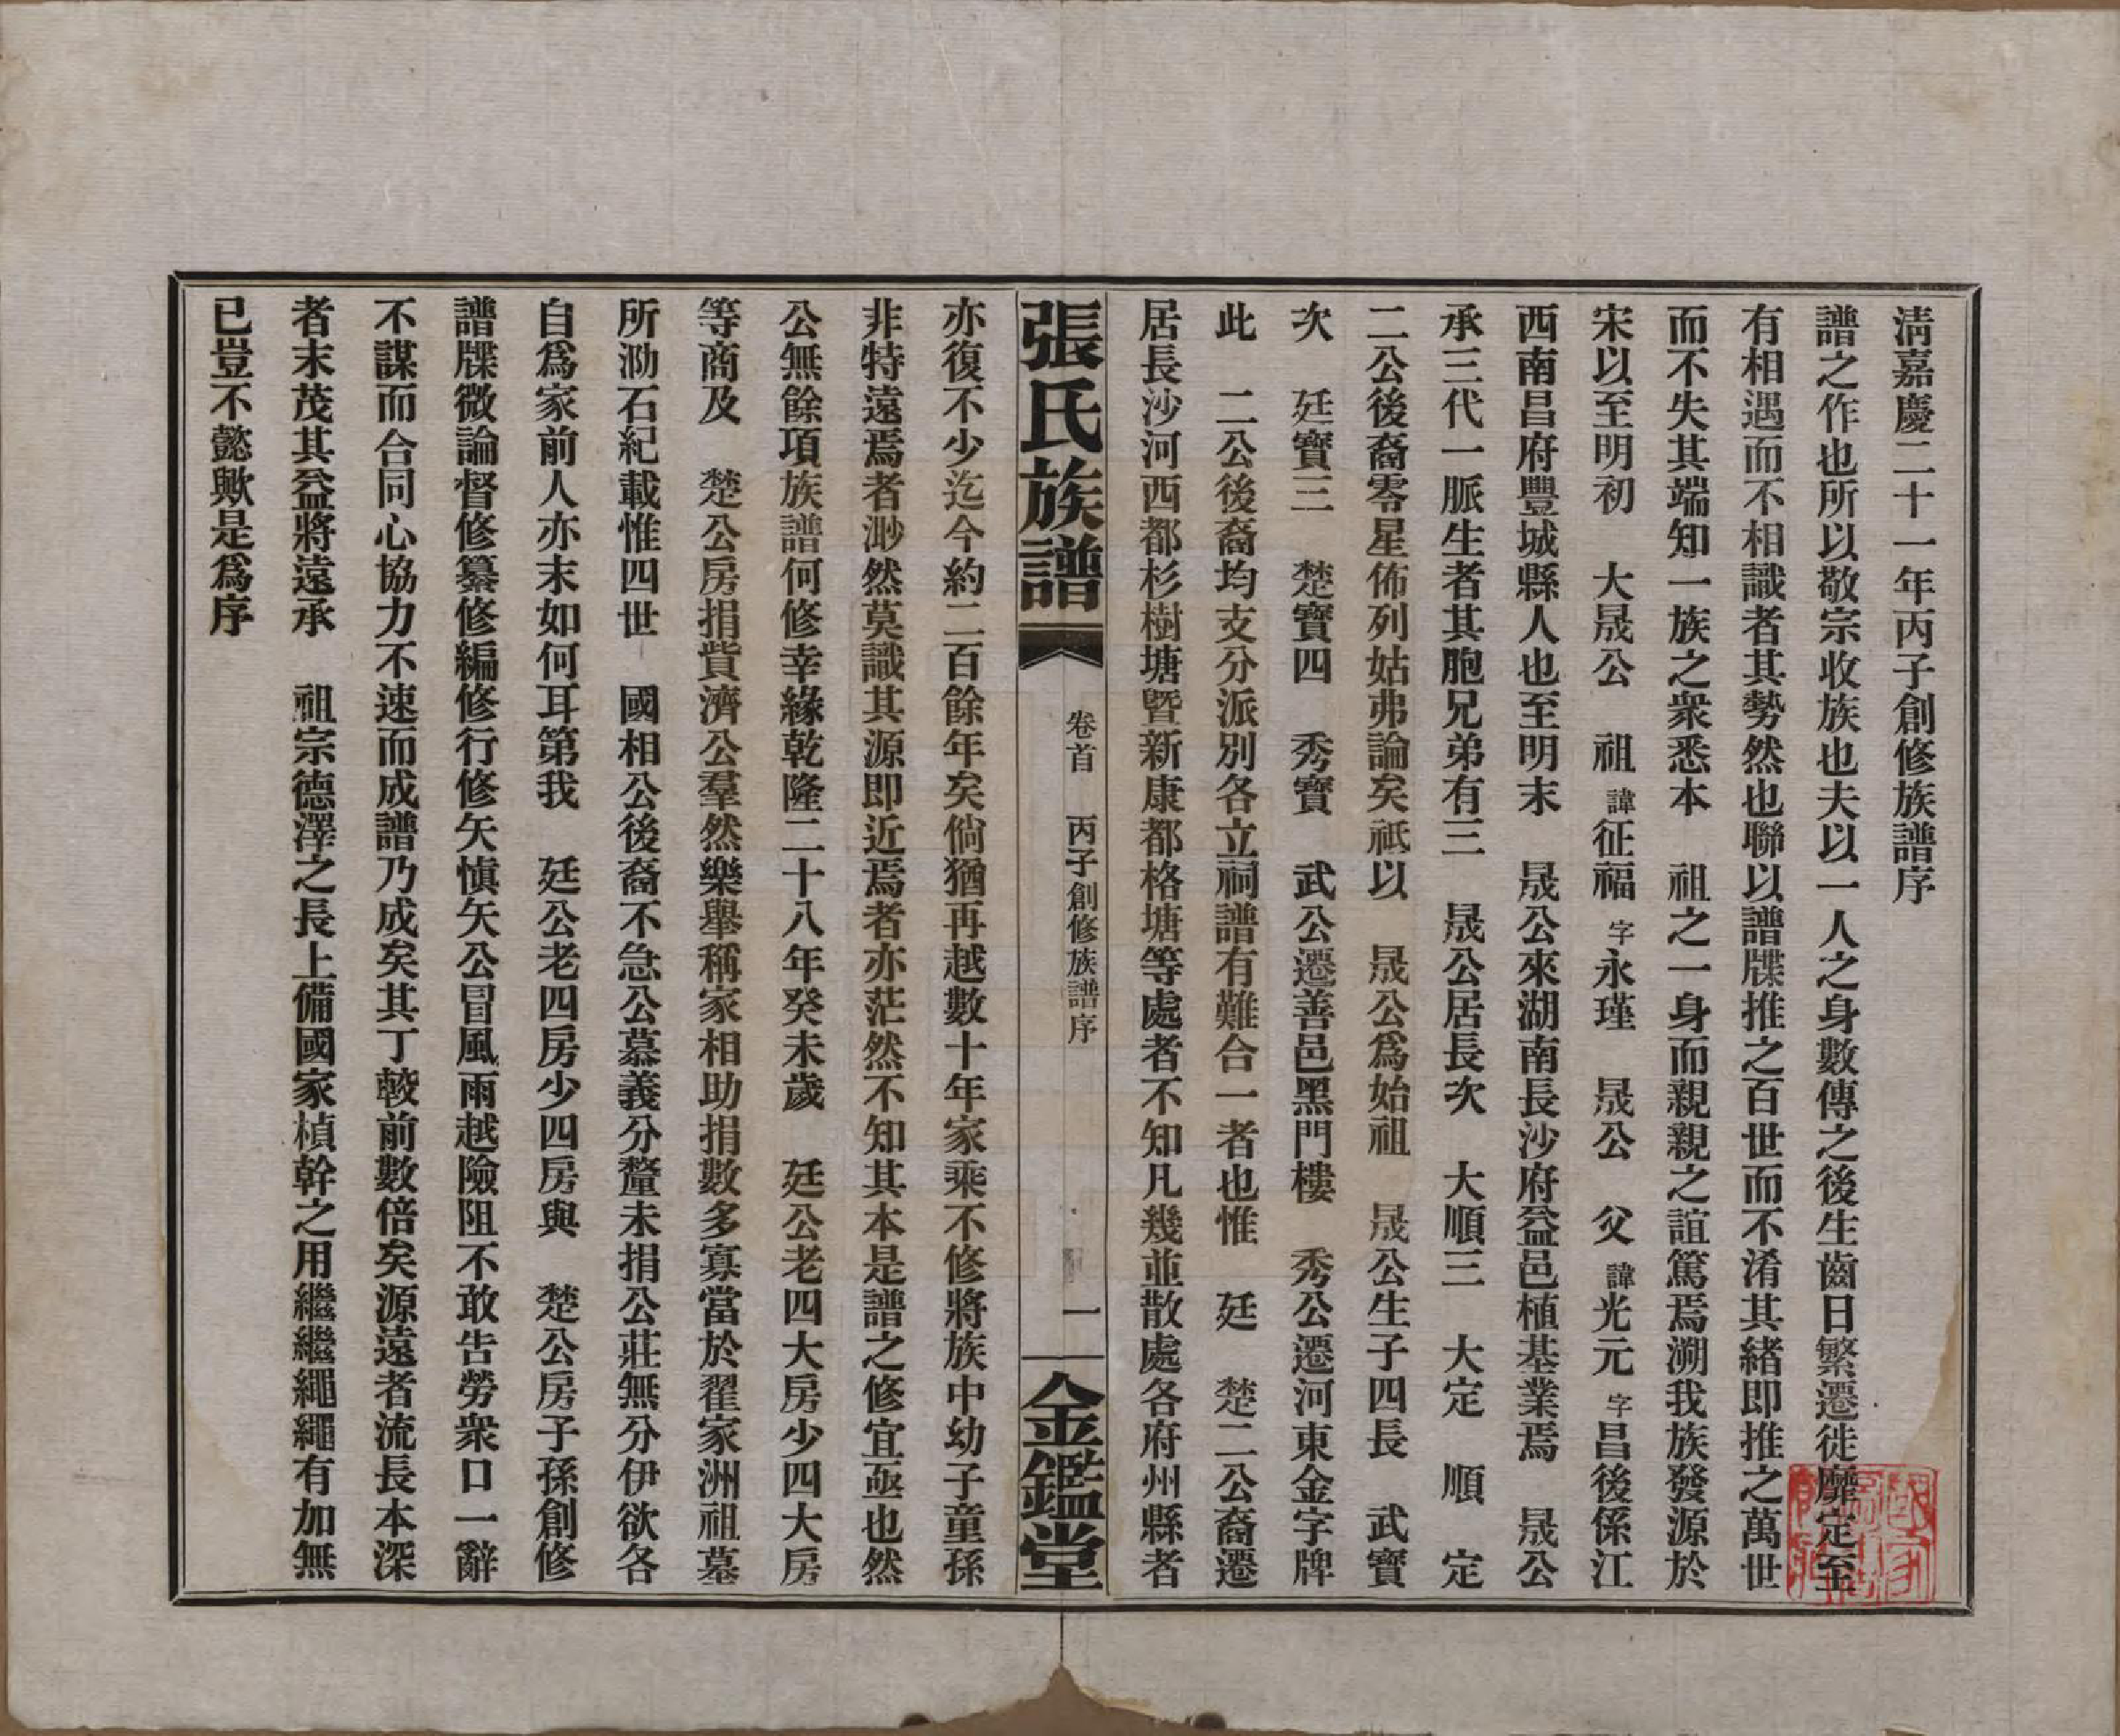 清嘉慶二十一年丙子創修族譜序
譜之作也所以敬宗收族也夫以一人之身數傳之後生齒日繁遷徙靡定至
有相遇而不相識者其勢然也聯以譜牒推之百世而不淆其緒即推之萬世
而不失其端知一族之衆悉本　祖之一身而親親之誼篤焉溯我族發源於
宋以至明初　大晟公　祖諱征福字永瑾　晟公　父諱光元字昌後係江
西南昌府豐城縣人也至明末　晟公來湖南長沙府益邑植基業焉　晟公
承三代一脈生者其胞兄弟有三　晟公居長次　大順三　大定　順　定
二公後裔零星佈列姑弗論矣祗以　晟公爲始祖　晟公生子四長　武寶
次　廷寶三　楚寶四　秀寶　武公遷善邑黑門樓　秀公遷河東金字牌
此　二公後裔均支分派別各立祠譜有難合一者也惟　廷　楚二公裔遷
居長沙河西都杉樹塘暨新康都格塘等處者不知凡幾並散處各府州縣者
張氏族譜
卷首　丙子創修族譜序
一
金鑑堂
亦復不少迄今約二百餘年矣倘猶再越數十年家乘不修將族中幼子童孫
非特遠焉者渺然莫識其源即近焉者亦茫然不知其本是譜之修宜亟也然
公無餘項族譜何修幸緣乾隆二十八年癸未歲　廷公老四大房少四大房
等商及　楚公房捐貲濟公羣然樂舉稱家相助捐數多寡當於翟家洲祖墓
所泐石紀載惟四世　國相公後裔不急公慕義分釐未捐公莊無分伊欲各
自爲家前人亦末如何耳第我　廷公老四房少四房與　楚公房子孫創修
譜牒微論督修纂修編修行修矢慎矢公冒風雨越險阻不敢告勞衆口一辭
不謀而合同心協力不速而成譜乃成矣其丁較前數倍矣源遠者流長本深
者末茂其益將遠承　祖宗德澤之長上備國家楨幹之用繼繼繩繩有加無
已豈不懿歟是爲序